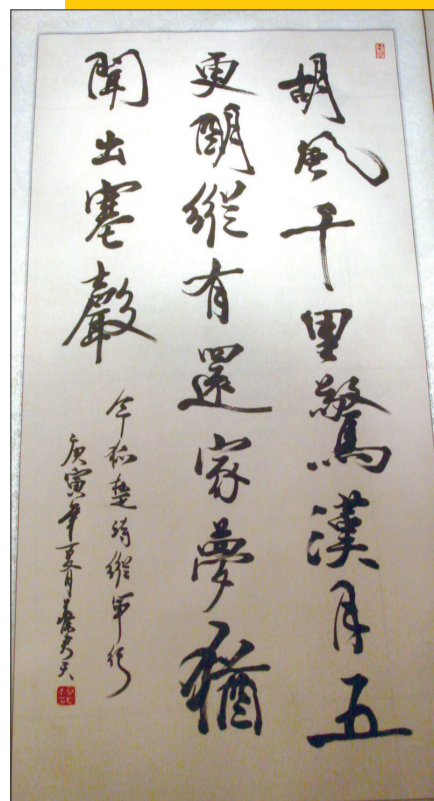 胡風千里驚漢月五
更明縱有還家夢猶
聞出塞聲
令狐楚詩縱軍行
庚寅年